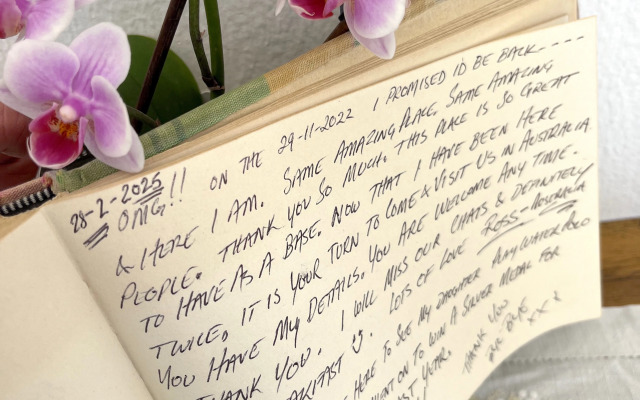 28-2-2025
OMG!! ON THE 29-11-2022 I PROMISED I'D BE BACK----
& HERE I AM. SAME AMAZING PLACE, SAME AMAZING
PEOPLE. THANK YOU SO MUCH. THIS PLACE IS SO GREAT
TO HAVE AS A BASE. NOW THAT I HAVE BEEN HERE
TWICE, IT IS YOUR TURN TO COME & VISIT US IN AUSTRALIA.
YOU HAVE MY DETAILS. YOU ARE WELCOME ANY TIME.
THANK YOU. I WILL MISS OUR CHATS & DEFINITELY
BREAKFAST. LOTS OF LOVE ROSS-AUSTRALIA
HERE TO SEE MY DAUGHTER PLAY WATER POLO
WENT ON TO WIN A SILVER MEDAL FOR
YEAR. THANK YOU
XXX